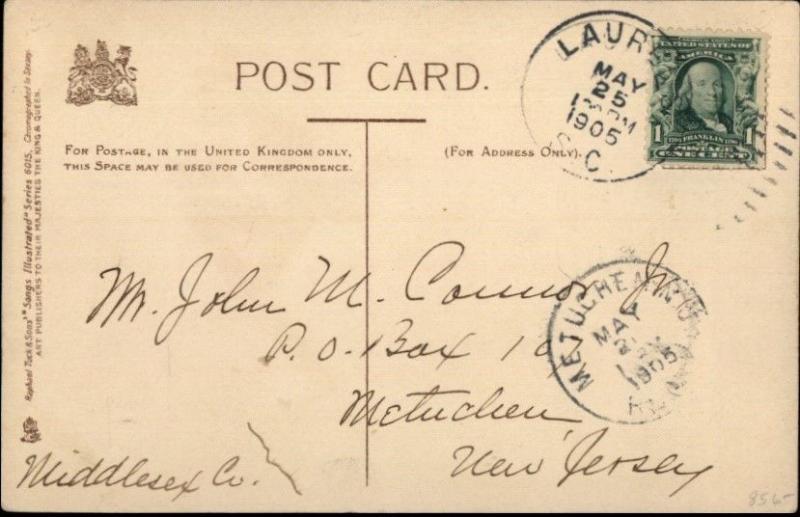 POST CARD.
FOR POSTAGE, IN THE UNITED KINGDOM ONLY,
THIS SPACE MAY BE USED FOR CORRESPONDENCE.
(FOR ADDRESS ONLY).
Raphael Tuck & Sons' "Songs Illustrated" Series 6015. Chromographed in Saxony.
ART PUBLISHERS TO THEIR MAJESTIES THE KING & QUEEN.
LAUR
MAY
25
1905
C.
UNITED STATES OF
AMERICA
1 FRANKLIN 1
POSTAGE
ONE CENT
METUCHEN
MAY
1905
Mr. John M. Connor Jr.
P.O. Box 107
Metuchen,
New Jersey
Middlesex Co.
856-